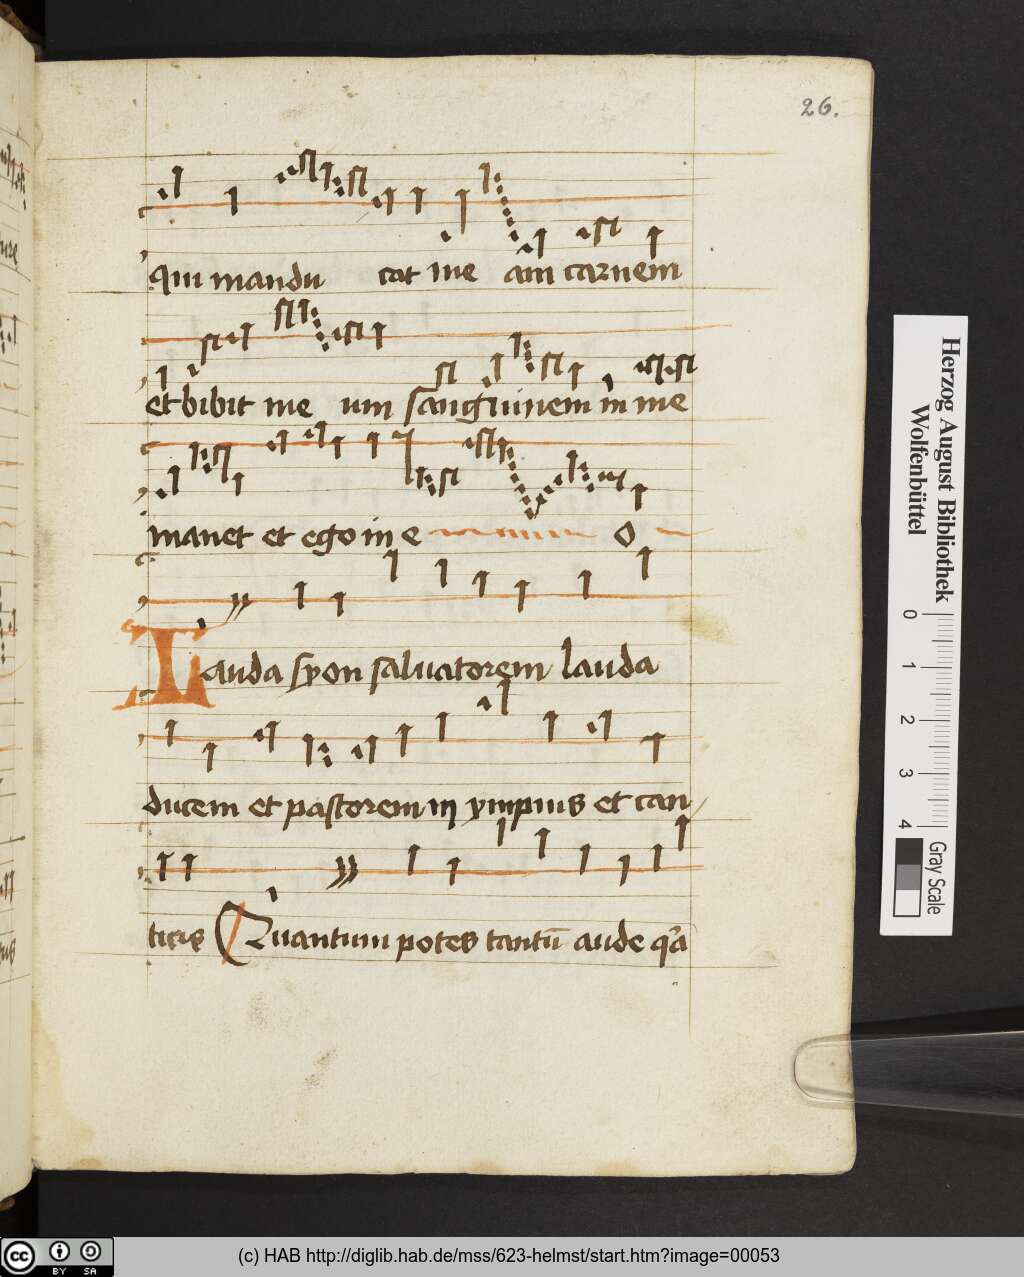 26.
qui mandu cat me am carnem
et bibit me um sanguinem in me
manet et ego in e o
Lauda syon saluatorem lauda
ducem et pastorem in ympnis et can
ticis Quantum potes tantū aude q̄a
Herzog August Bibliothek
Wolfenbüttel
0 1 2 3 4
Gray Scale
cc BY SA
(c) HAB http://diglib.hab.de/mss/623-helmst/start.htm?image=00053